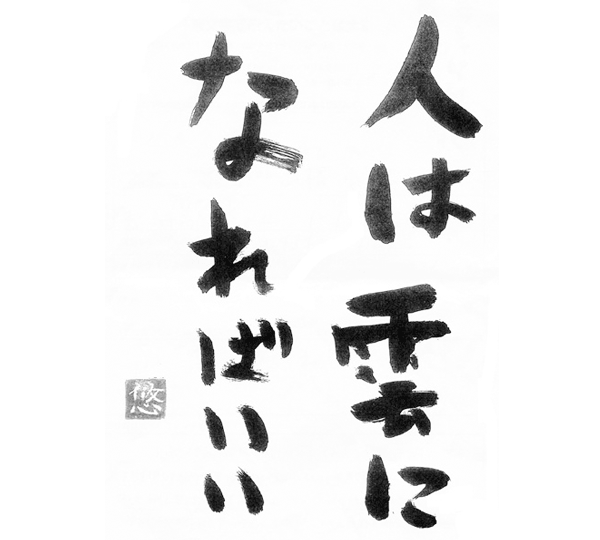 人は雲に
なればいい
悠